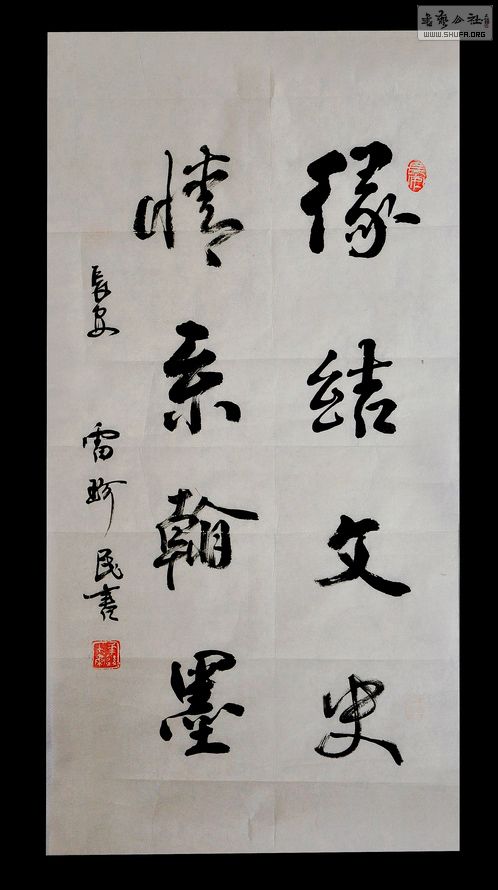 缘结文史
情系翰墨
长安
雷珍民书
书艺公社
WWW.SHUFA.ORG